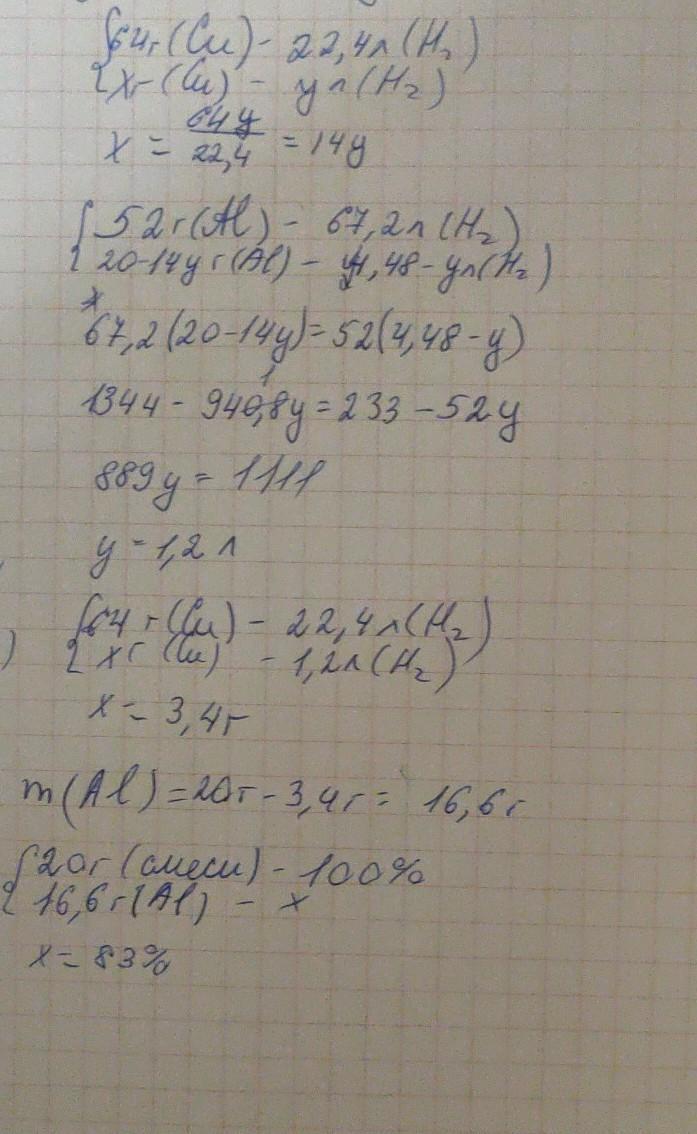 {64г(Cu) - 22,4л(H₂)
{xг(Cu) - yл(H₂)
x = 64y/22,4 = 14y
{52г(Al) - 67,2л(H₂)
{20-14yг(Al) - 4,48-yл(H₂)
67,2(20-14y)=52(4,48-y)
1344 - 941y = 233 - 52y
889y = 1111
y = 1,2л
) {64г(Cu) - 22,4л(H₂)
{xг(Cu) - 1,2л(H₂)
x = 3,4г
m(Al) = 20г - 3,4г = 16,6г
{20г(смеси) - 100%
{16,6г(Al) - x
x = 83%